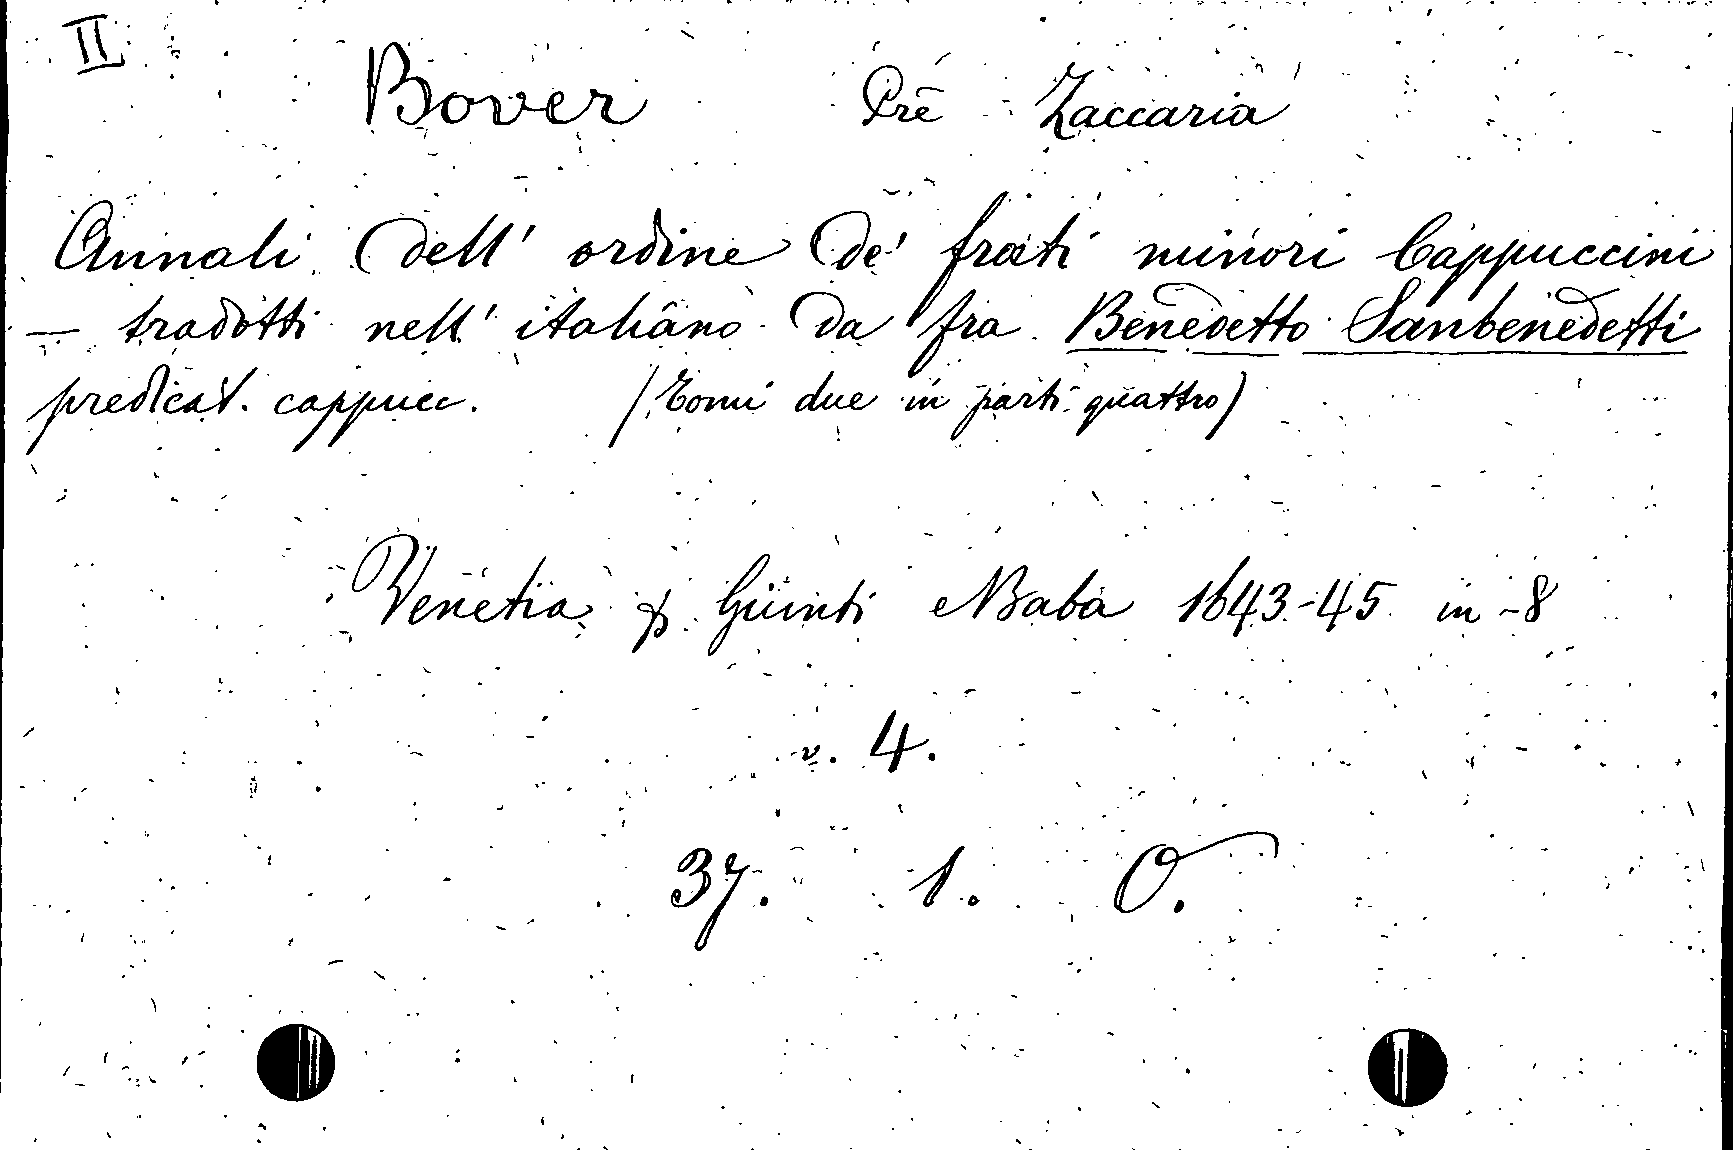 II
Bover Prē Zaccaria
Annali dell' ordine de' frati minori Cappuccini
— tradotti nell' italiano da fra Benedetto Sanbenedetti
predicat. cappucc. (Tomi due in parti quattro)
Venetia p. Giunti e Baba 1643-45 in -8
v. 4.
37. 1. O.